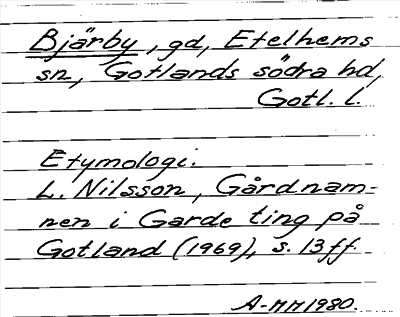 Bjärby, gd, Etelhems
sn, Gotlands södra hd,
Gotl. l.
Etymologi.
L. Nilsson, Gårdnam-
nen i Garde ting på
Gotland (1969), s. 13ff.
A-MM 1980.